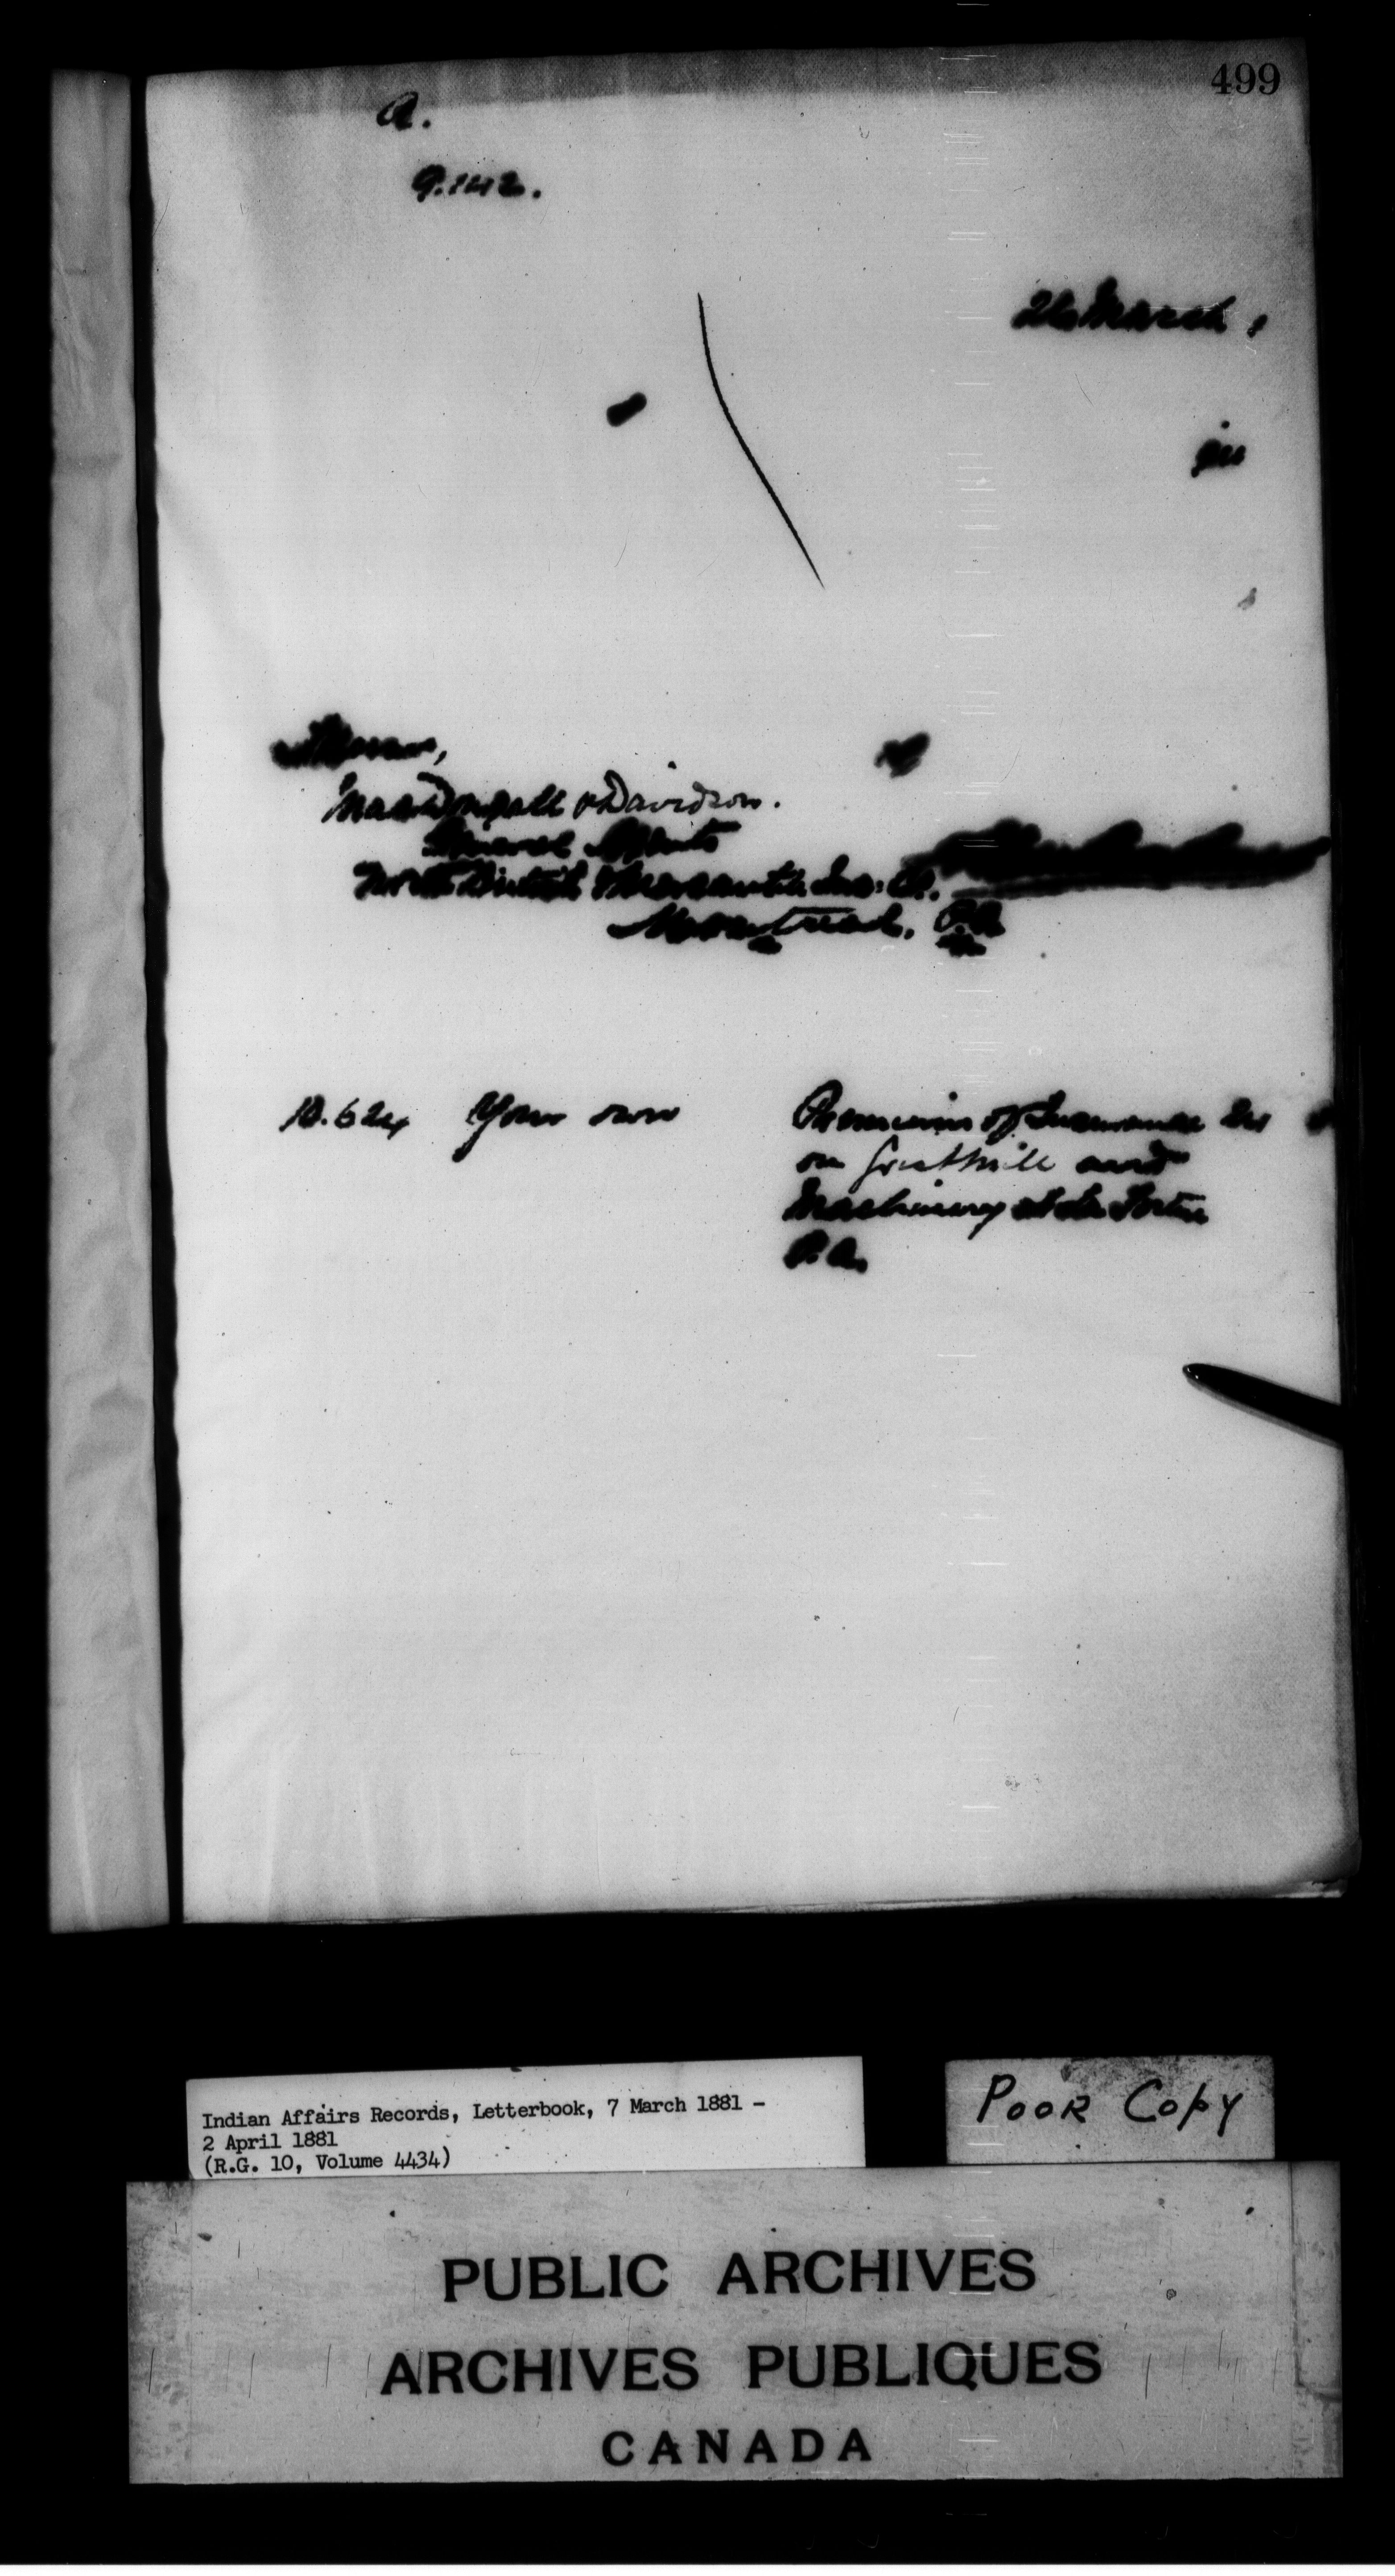 499
A.
9.142.
26 March,
Messrs,
MacDougall & Davidson.
General Agents
North British & Mercantile Ins: Co.
Montreal, P.Q.
D.624 Your own Premium of Insurance
on Grist Mill and
Machinery at
P.Q.
Indian Affairs Records, Letterbook, 7 March 1881 -
2 April 1881
(R.G. 10, Volume 4434)
Poor Copy
PUBLIC ARCHIVES
ARCHIVES PUBLIQUES
CANADA